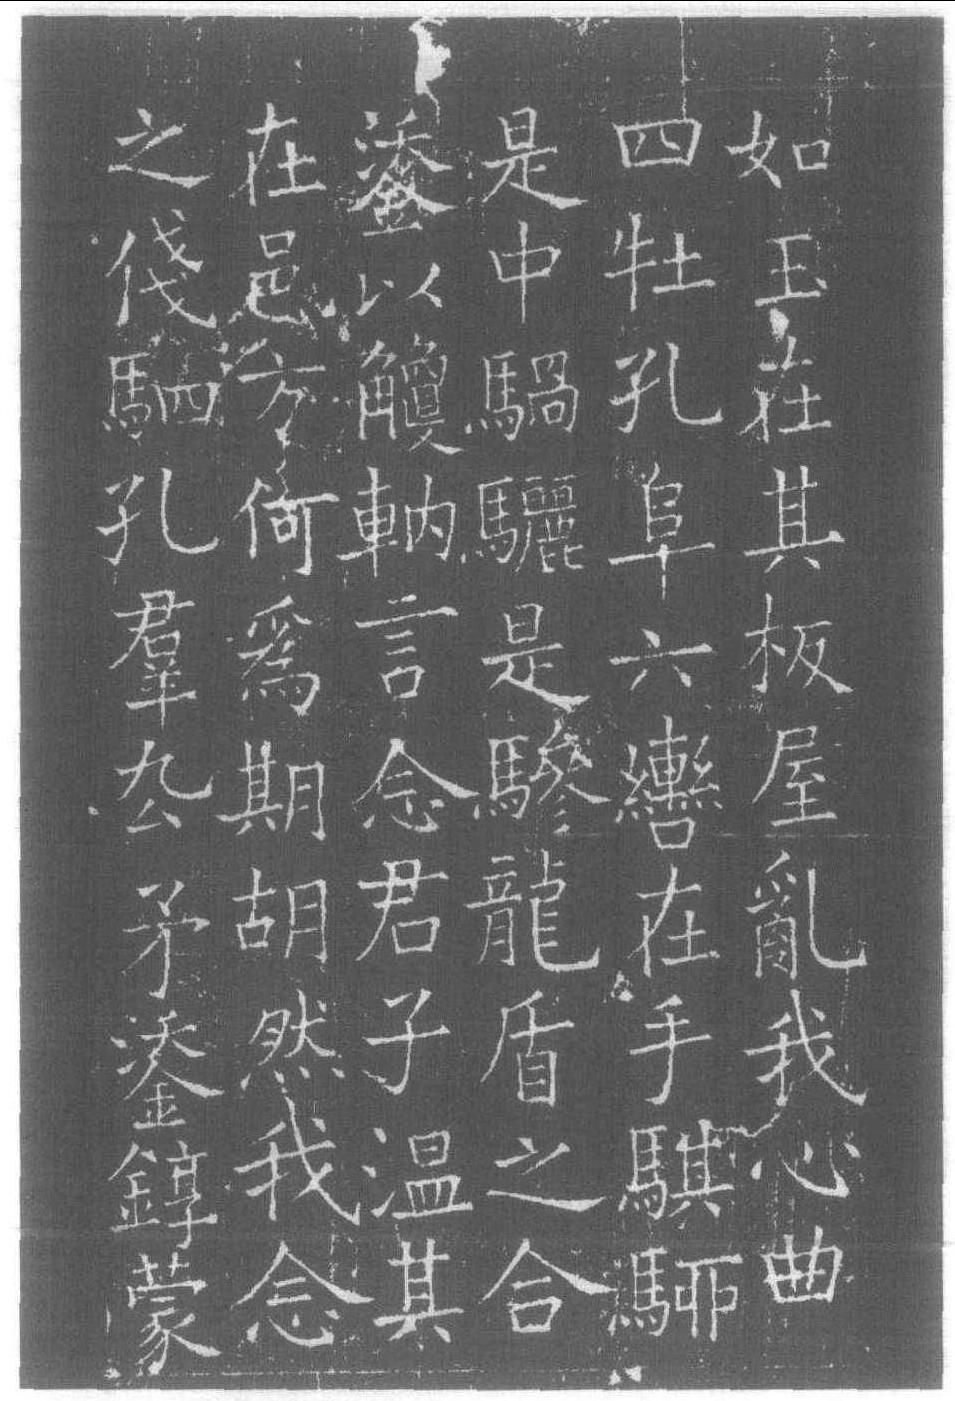 如玉在其板屋亂我心曲
四牡孔阜六轡在手騏駵
是中騧驪是驂龍盾之合
鋈以觼軜言念君子温其
在邑方何爲期胡然我念
之俴駟孔羣厹矛鋈錞蒙